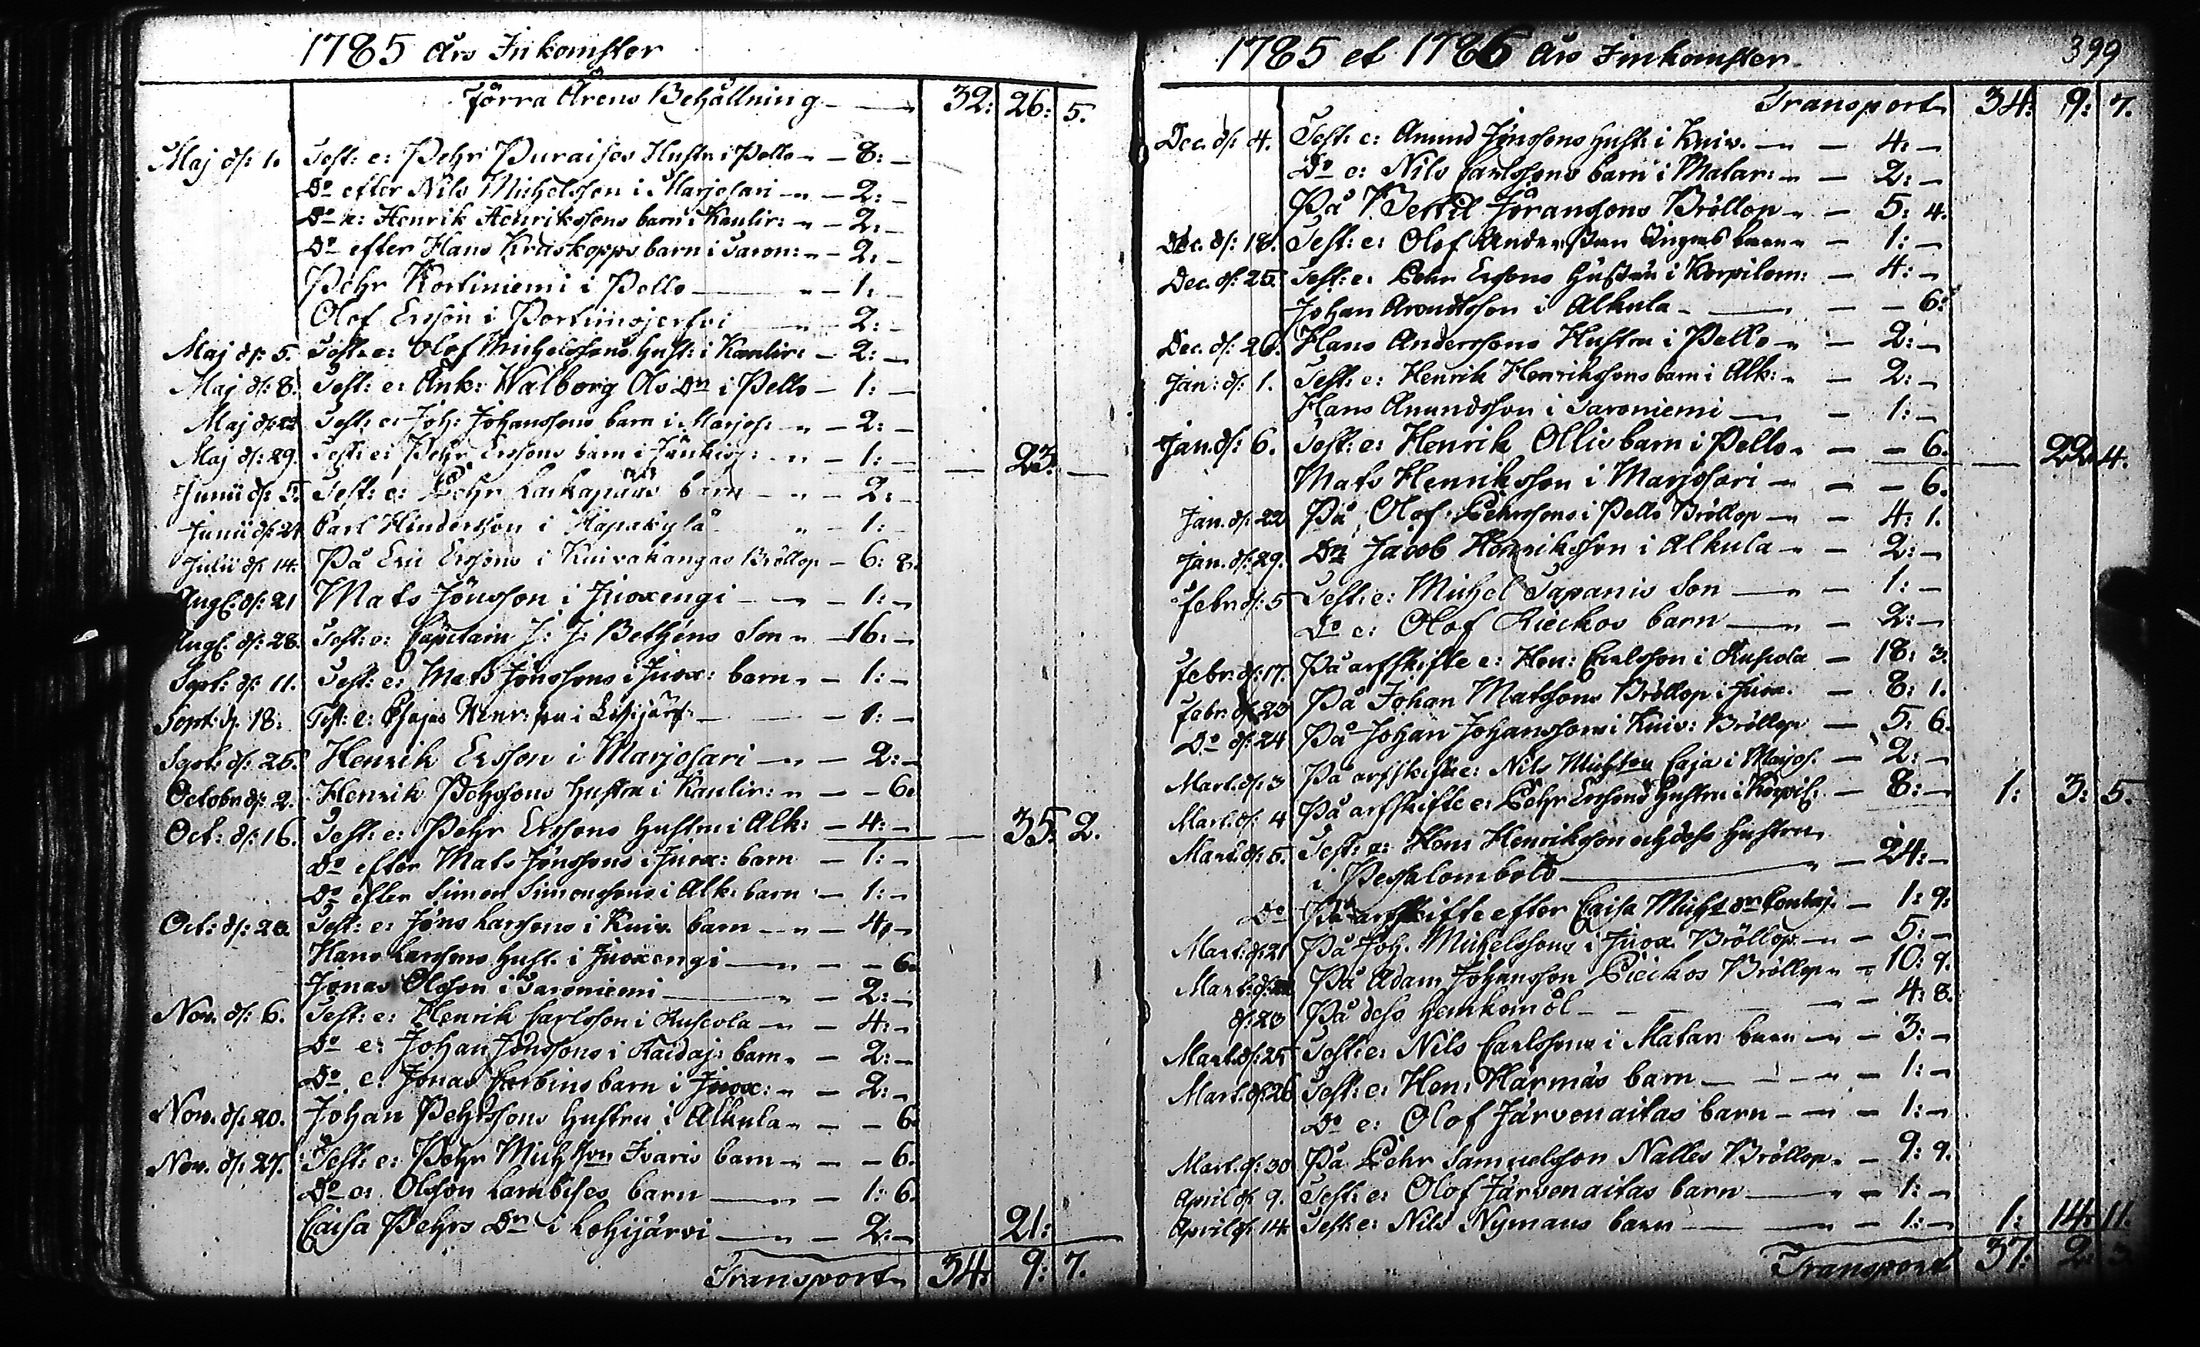 1785 Års Inkomster
Förra Årens Behållning — 32: 26: 5.
Maj d: 1. Test: e: Pehr Puraises Hustru i Pello — 8: —
Do efter Nils Michelsson i Marjosari — 2: —
Do e: Henrik Henrikssons barn i Kaulir: — 2: —
Do efter Hans Kraskopps barn i Saron: — 2: —
Pehr Kortiniemi i Pello — 1: —
Olof Ersson i Portimojerfvi — 2: —
Maj d: 5. Test: e: Olof Michelssons hust: i Kaulir: — 2: —
Maj d: 8. Test: e: Enk: Walborg Ols Dr i Pello — 1: —
Maj d: 22 Test: e: Joh: Johanssons barn i Marjos: — 2: —
Maj d: 29. Test: e: Pehr Erssons barn i Junkisj: — 1: — — 23. —
Junii d: 5. Test: e: Pehr Laskapääs barn — 2: —
Junii d: 24 Carl Hindersson i Haapakylä — 1: —
Julii d: 14. På Eric Erssons i Kuivakangas Bröllop — 6: 8.
Aug: d: 21 Mats Jönsson i Juoxengi — 1: —
Aug: d: 28. Test: e: Capitain J: J: Bethéns Son — 16: —
Sept: d: 11. Test: e: Mats Jönssons i Juox: barn — 1: —
Sept: d: 18. Test: e: Henr: i — 1: —
Sept: d: 25. Henrik Ersson i Marjosari — 2: —
Octobr: d: 2. Henrik Pehrssons hustru i Kaulir: — 6.
Oct: d: 16. Test: e: Pehr Erssons hustru i Alk: — 4: — — 35: 2.
Do efter Mats Jönssons i Juox: barn — 1: —
Do efter Simon Simonssons i Alk: barn — 1: —
Oct: d: 20. Test: e: Jöns Larssons i Kuiv. barn — 4: —
Hans Larssons hust. i Juoxengi — 6.
Jonas Olsson i Saroniemi — 2: —
Nov. d: 6. Test: e: Henrik Carlsson i Ruskola — 4: —
Do e: Johan Jönssons i Kaidaj: barn — 2: —
Do e: Jonas Korbins barn i Juox: — 2: —
Nov. d: 20. Johan Pehrssons hustru i Alkula — 6.
Nov. d: 27. Test: e: Pehr Michsson Isaris barn — 6.
Do e: Olsson Lambises barn — 1: 6.
Caisa Pehrs Dr i Lohijärvi — 2: — 21:
Transport 34: 9: 7.
1785 et 1786 Års Inkomster 399
Transport 34: 9: 7.
Dec. d: 4. Test: e: Amund Jönssons hust: i Kuiv. — 4: —
Do e: Nils Carlssons barn i Matar: — 2: —
På Bertil Göranssons Bröllop — 5: 4.
Dec. d: 18. Test: e: Olof Andersson barn — 1: —
Dec. d: 25. Test: e: Pehr Erssons hustru i Korpilom: — 4: —
Johan Arendtsson i Alkula — 6:
Dec. d: 26. Hans Anderssons Hustru i Pello — 2: —
Jan: d: 1. Test: e: Henrik Henrikssons barn i Alk: — 2: —
Hans Amundsson i Saroniemi — 1: —
Jan. d: 6. Test: e: Henrik Ollis barn i Pello — 6. — 22: 4.
Mats Henriksson i Marjosari — 6.
Jan. d: 22 På Olof Pehrssons i Pello Bröllop — 4: 1.
Jan. d: 29. Dn Jacob Henriksson i Alkula — 2: —
Febr: d: 5 Test: e: Michel Tapanis Son — 1: —
Do e: Olof Kieckos barn — 2: —
Febr: d: 17. På arfskifte e: Hen: Carlsson i Ruskola — 18: 3.
Febr: d: 23 På Johan Matssons Bröllop i Juox. — 8: 1.
Do d: 24 På Johan Johanssons i Kuiv: Bröllop — 5: 6.
Mart. d: 3 På arfskifte e: Nils Michsson Caja i Marjos. — 2: —
Mart. d: 4 På arfskifte e: Pehr Erssons hustru i Korpil: — 8: — 1: 3: 5.
Mart. d: 5. Test: e: Hans Henriksson och dess hustru
i Pessalombolo — 24: —
Do På arfskifte efter Caisa Michs dr — 1: 9:
Mart. d: 21 På Joh. Michelssons i Juox. Bröllop — 5: —
Mart. d: På Adam Johansson Kieckos Bröllop — 10: 9.
d: 23 På dess hemkomöl — 4: 8.
Mart. d: 25 Test: e: Nils Carlssons i Matar: barn — 3: —
Mart. d: 26 Test: e: Hen: Harmas barn — 1: —
Do e: Olof Järvenaitas barn — 1: —
Mart. d: 30 På Pehr Samuelsson Nalles Bröllop — 9: 9.
April d: 9. Test: e: Olof Järvenaitas barn — 1: —
April d: 14. Test: e: Nils Nymans barn — 1: — 1: 14: 11.
Transport 37: 2: 3